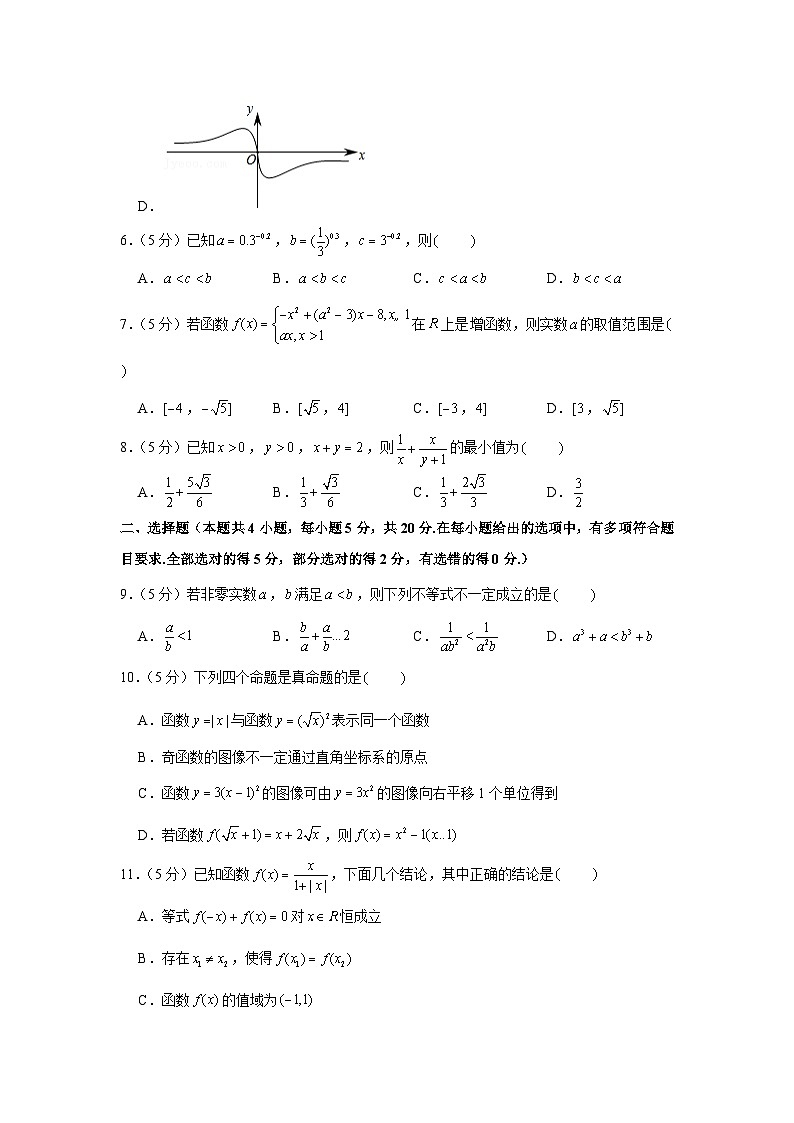 y
x
O
D.
6.(5分)已知a=0.3^{-0.2},b=(\frac{1}{3})^{0.3},c=3^{-0.2},则( )
A.a<c<b B.a<b<c C.c<a<b D.b<c<a
7.(5分)若函数f(x)=\begin{cases}-x^2+(a^2-3)x-8,x,, 1\\ax,x>1\end{cases}在R上是增函数,则实数a的取值范围是(
)
A.[-4,-\sqrt{5}] B.[\sqrt{5},4] C.[-3,4] D.[3,\sqrt{5}]
8.(5分)已知x>0,y>0,x+y=2,则\frac{1}{x}+\frac{x}{y+1}的最小值为( )
A.\frac{1}{2}+\frac{5\sqrt{3}}{6} B.\frac{1}{3}+\frac{\sqrt{3}}{6} C.\frac{1}{3}+\frac{2\sqrt{3}}{3} D.\frac{3}{2}
二、选择题(本题共4小题,每小题5分,共20分.在每小题给出的选项中,有多项符合题
目要求.全部选对的得5分,部分选对的得2分,有选错的得0分.)
9.(5分)若非零实数a,b满足a<b,则下列不等式不一定成立的是( )
A.\frac{a}{b}<1 B.\frac{b}{a}+\frac{a}{b}...2 C.\frac{1}{ab^2}<\frac{1}{a^2b} D.a^3+a<b^3+b
10.(5分)下列四个命题是真命题的是( )
A.函数y=|x|与函数y=(\sqrt{x})^2表示同一个函数
B.奇函数的图像不一定通过直角坐标系的原点
C.函数y=3(x-1)^2的图像可由y=3x^2的图像向右平移1个单位得到
D.若函数f(\sqrt{x}+1)=x+2\sqrt{x},则f(x)=x^2-1(x..1)
11.(5分)已知函数f(x)=\frac{x}{1+|x|},下面几个结论,其中正确的结论是( )
A.等式f(-x)+f(x)=0对x∈R恒成立
B.存在x_1≠x_2,使得f(x_1)=f(x_2)
C.函数f(x)的值域为(-1,1)